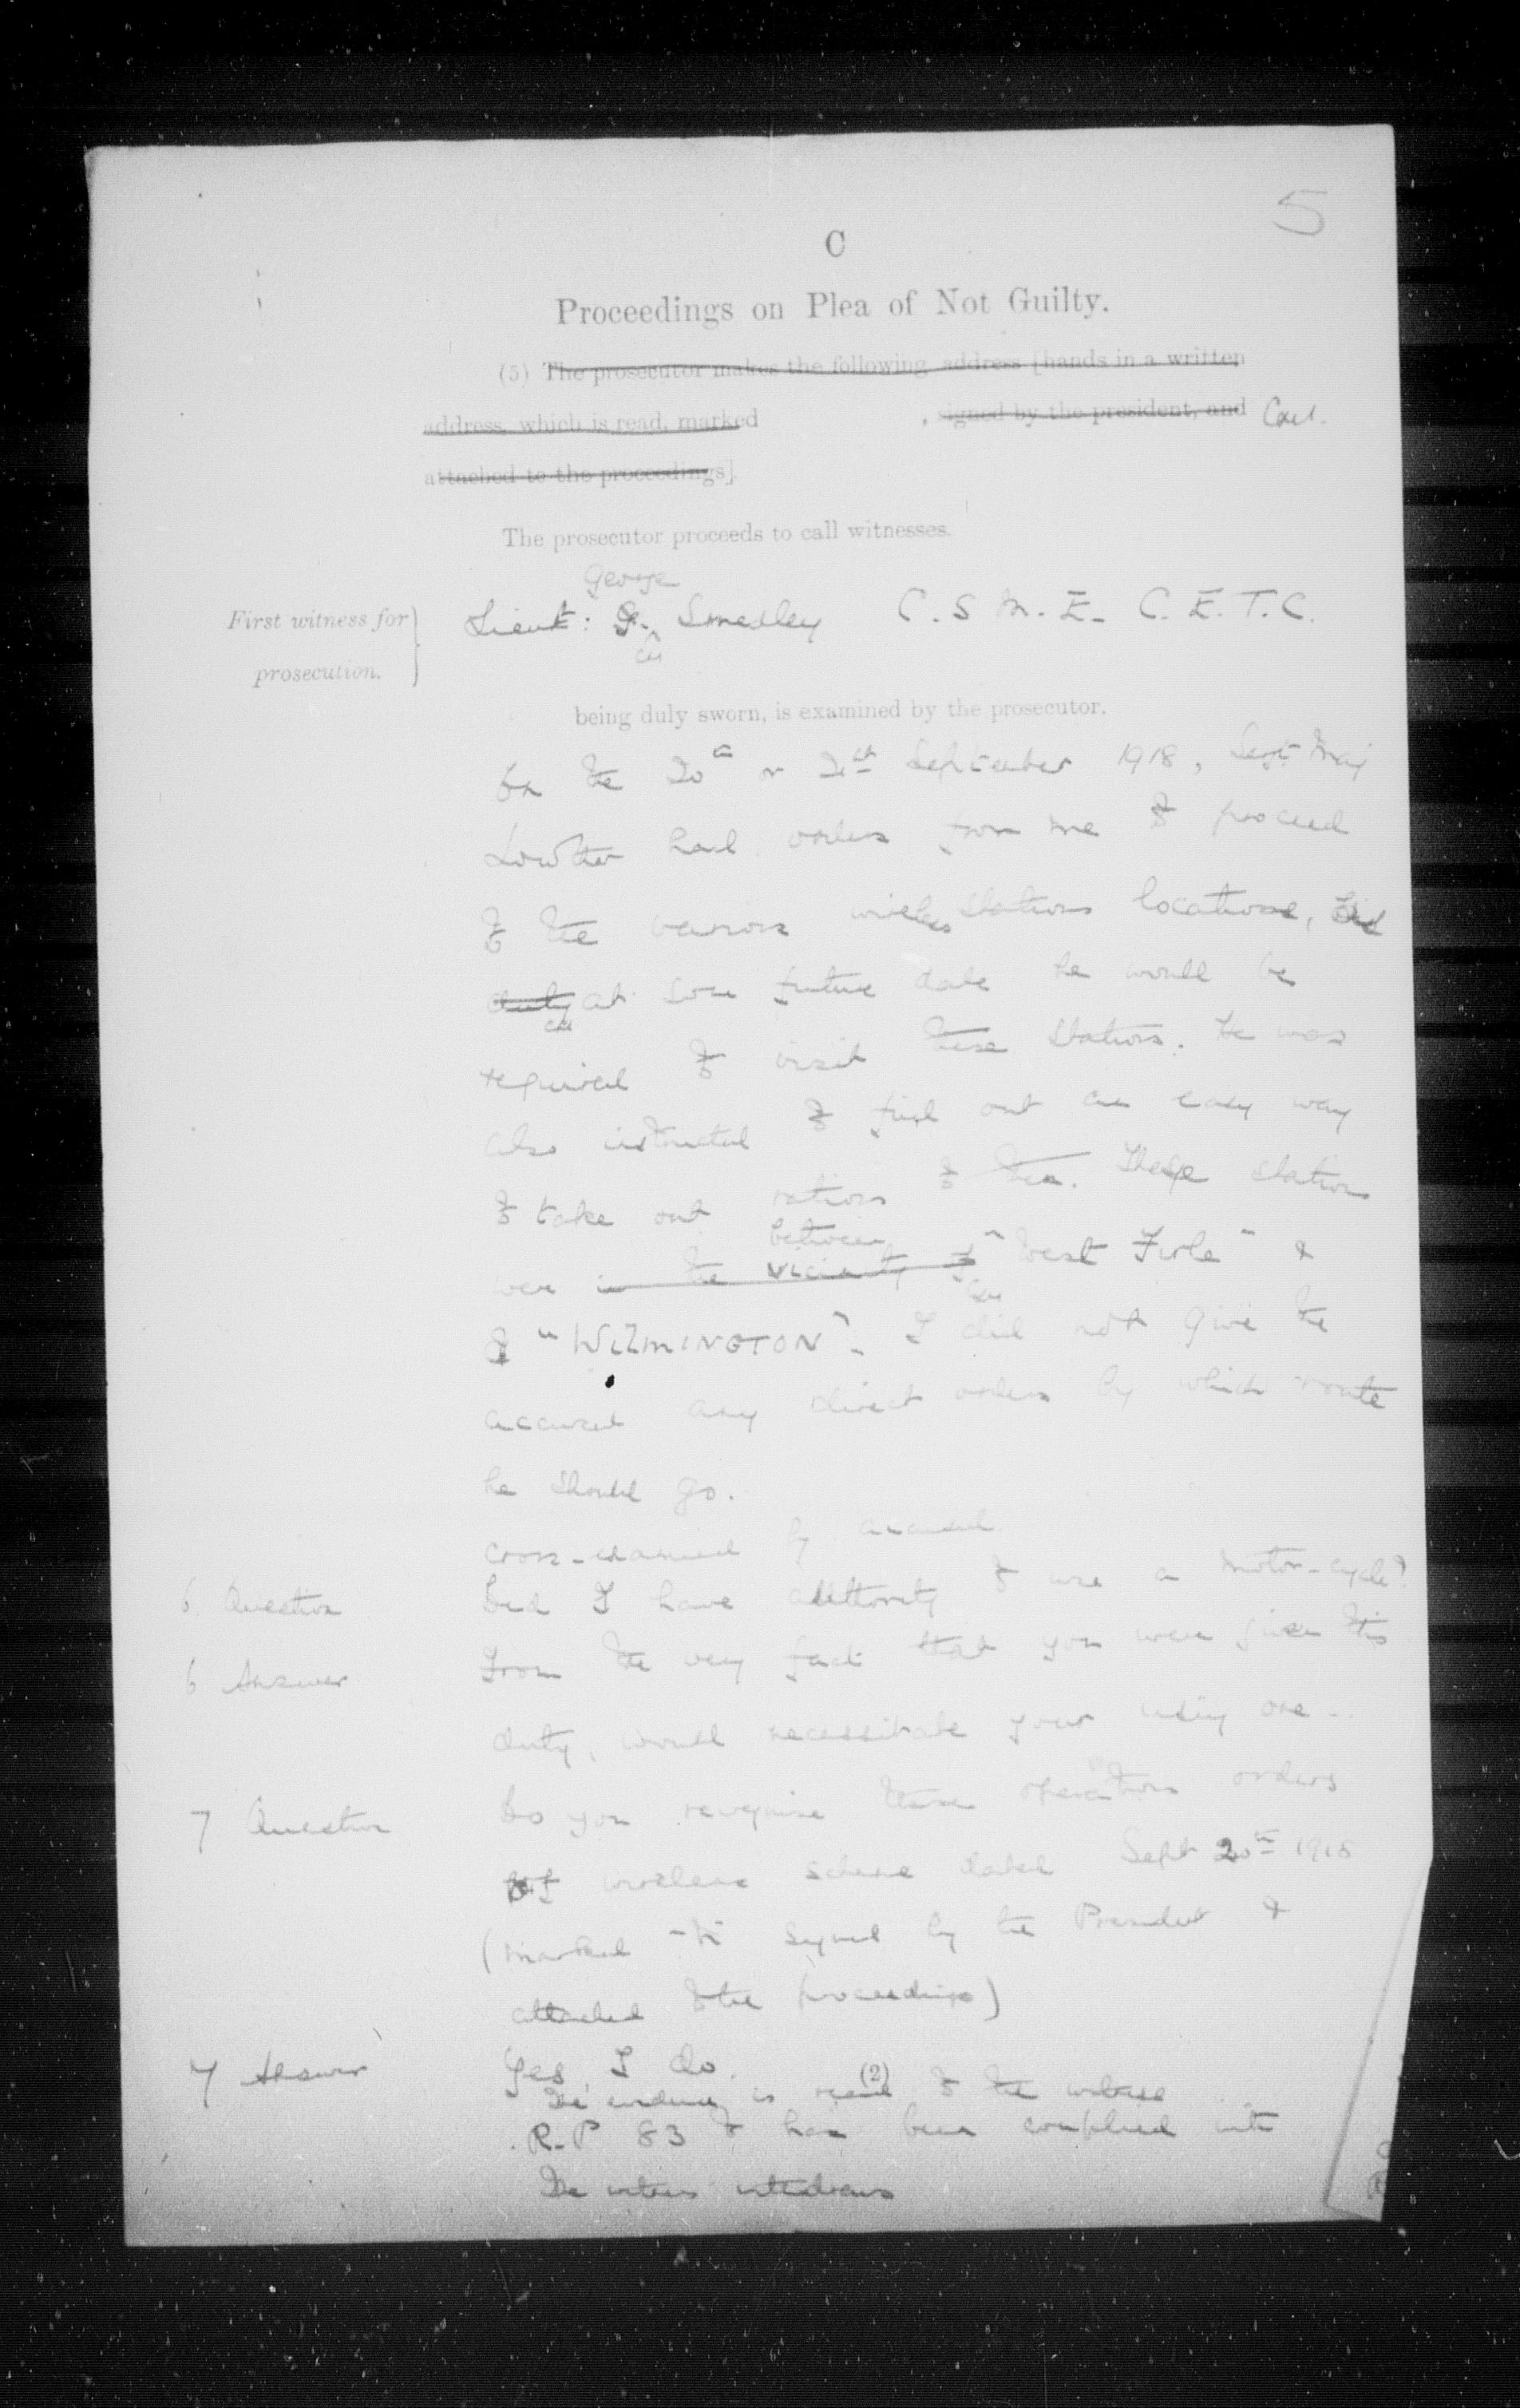 5
C
Proceedings on Plea of Not Guilty.
(5) The prosecutor makes the following address [hands in a written
address, which is read, marked , signed by the president, and
attached to the proceedings].
The prosecutor proceeds to call witnesses.
George
First witness for prosecution. Lieut: G. Smedley C.S.M.E. C.E.T.C.
being duly sworn, is examined by the prosecutor.
On the 20th or 21st September 1918, Sergt Maj
Lowther had orders from me to proceed
to the various wireless stations locations,
duty at some future date he would be
required to visit these stations. He was
also instructed to find out an easy way
to take out rations to them. These stations
between
were in the vicinity of "West Firle" &
of "WILMINGTON". I did not give the
accused any direct orders by which route
he should go.
cross-examined by accused
6 Question Did I have authority to use a motor-cycle?
6 Answer From the very fact that you were given this
duty, would necessitate your using one.
7 Question Do you recognise these operation orders
of wireless scheme dated Sept 20th 1918
(marked signed by the President &
attached to the proceedings)
7 Answer Yes, I do.
The evidence is read to the witness
R.P 83 (2) has been complied with
The witness withdraws